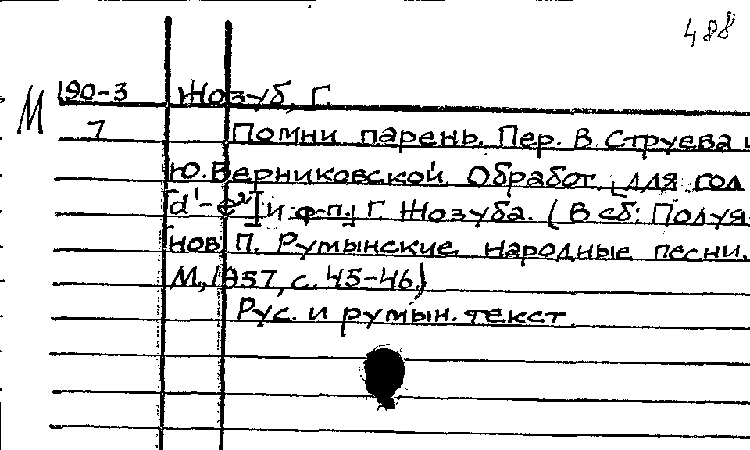 488
М 190-3 Жозуб, Г.
7 Помни парень. Пер. В. Струева и
Ю. Верниковской. Обработ. [для гол
[d¹-e²] и ф-п.] Г. Жозуба. (В сб: Полуя-
нов П. Румынские народные песни.
М., 1957, с. 45-46)
Рус. и румын. текст.